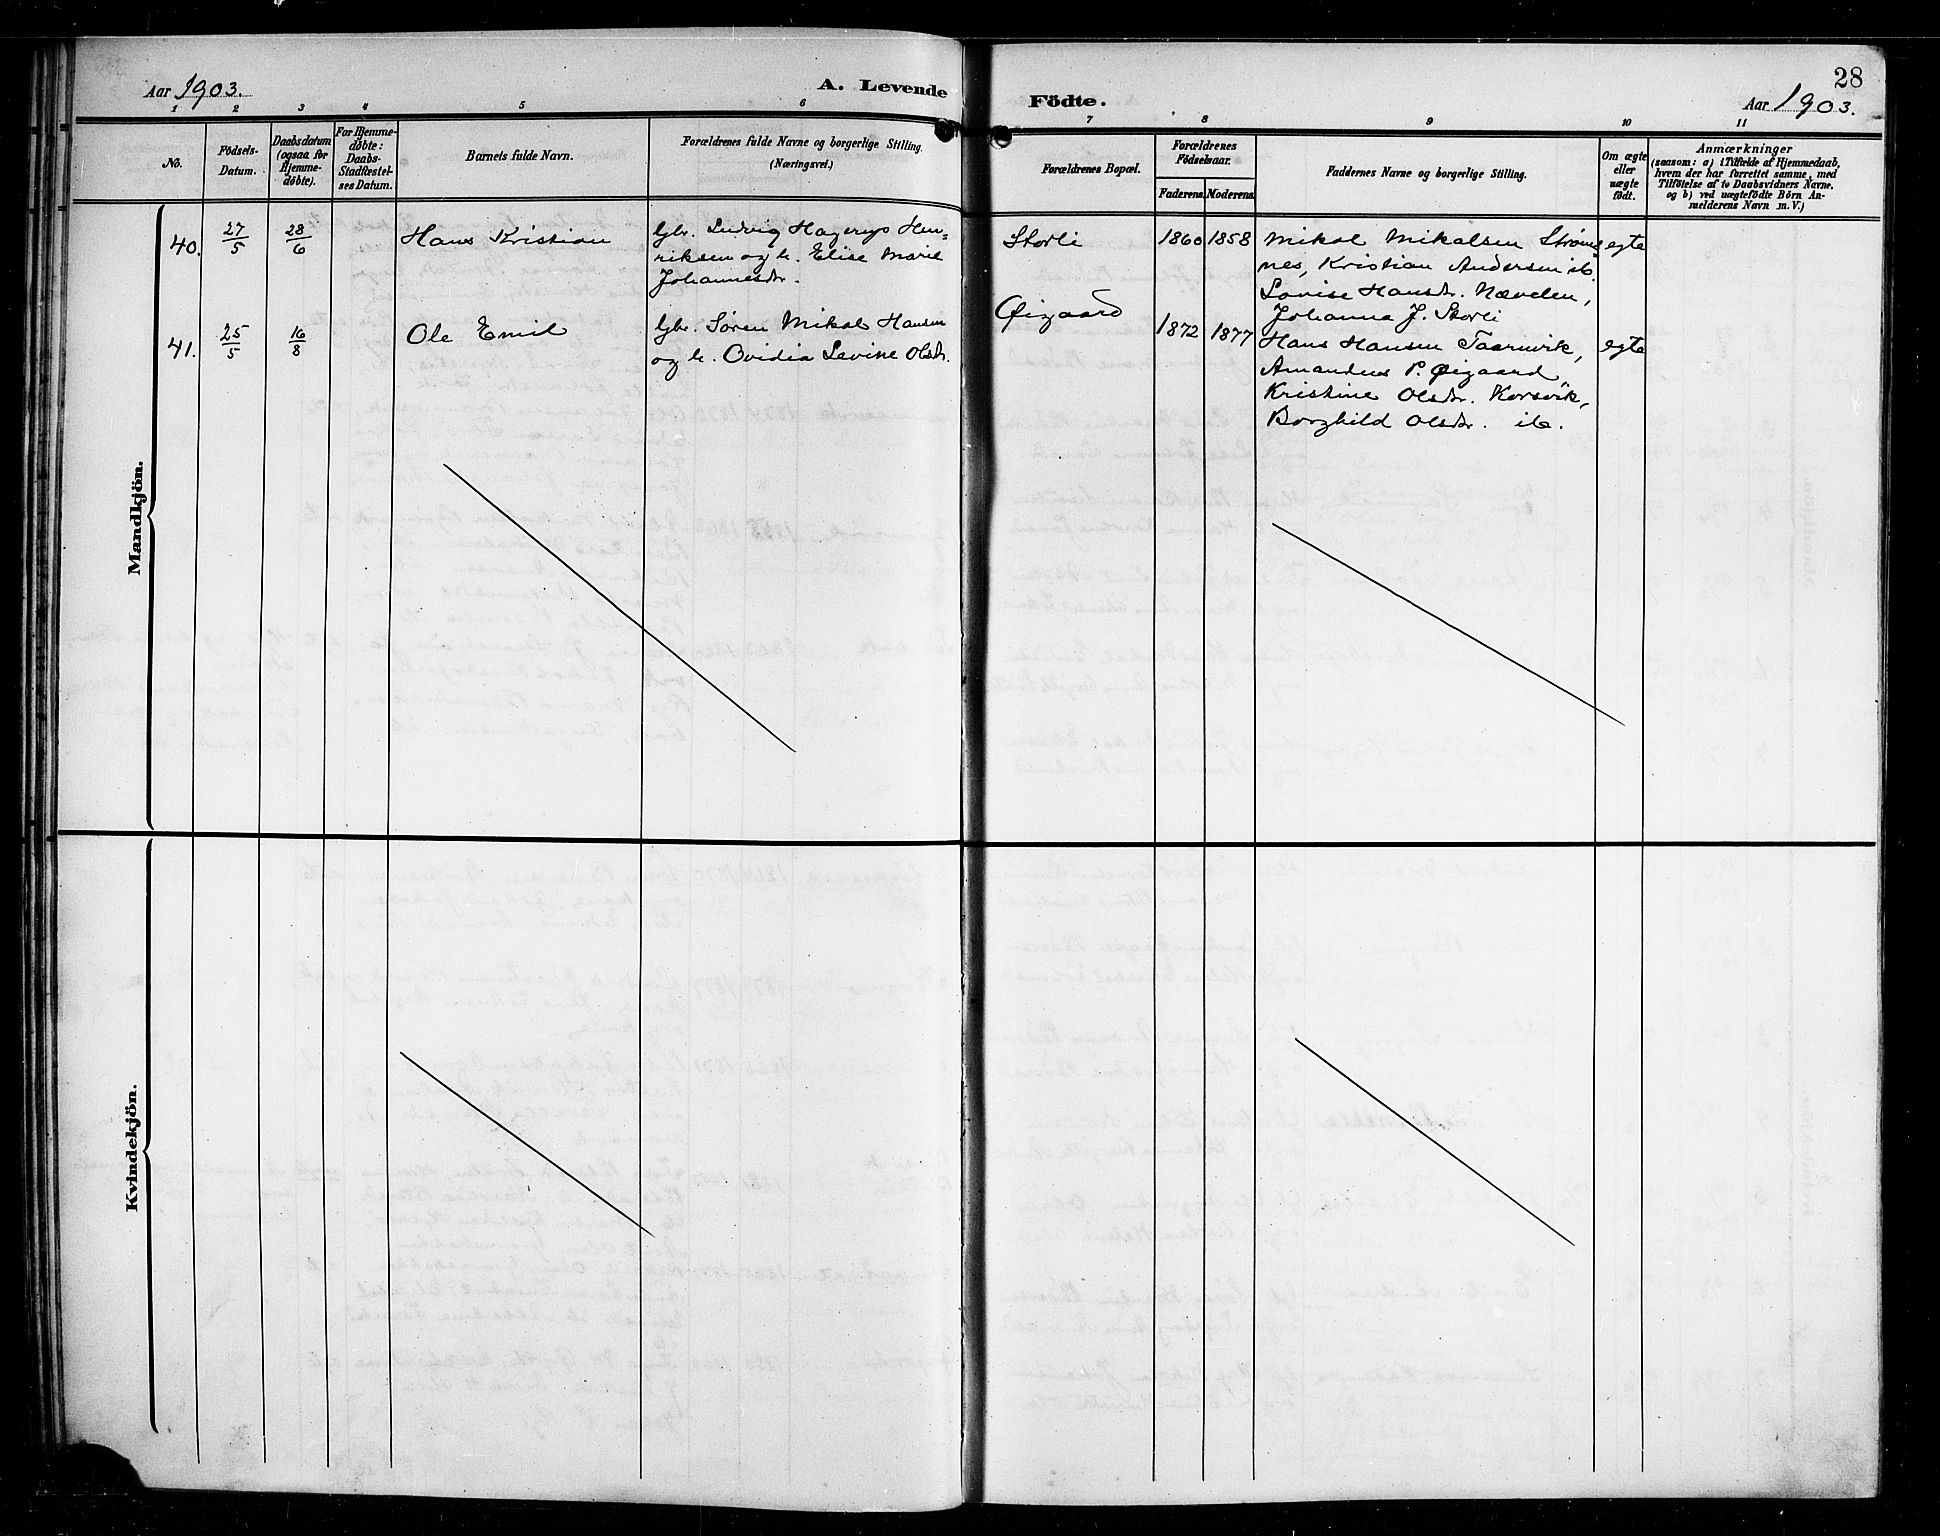 Aar 1903.
A. Levende
Födte.
28
Aar 1903.
1 2 3 4 5 6 7 8 9 10 11
No.
Födsels-
Datum.
Daabsdatum
(ogsaa for
Hjemme-
døbte).
For Hjemme-
døbte:
Daabs-
Stadfæstel-
ses Datum.
Barnets fulde Navn.
Forældrenes fulde Navne og borgerlige Stilling.
(Næringsvei.)
Forældrenes Bopæl.
Forældrenes
Födselsaar.
Faderens. Moderens.
Faddernes Navne og borgerlige Stilling.
Om ægte
eller
uægte
födt.
Anmærkninger
(saasom: a) i Tilfælde af Hjemmedaab,
hvem der har forrettet samme, med
Tilföielse af to Daabsvidners Navne,
og b) ved uægtefödte Börn An-
melderens Navn m. V.)
Mandkjön.
40.
27/5
28/6
Hans Kristian
Gbr. Ludvig Hagerup Hen-
riksen og h. Elise Marie
Johannesdr.
Storli
1860 1858
Mikal Mikalsen Strøm-
nes, Kristian Andersen ib
Lovise Hansdr. Nævelen,
Johanna J. Storli
egte
41.
25/5
16/8
Ole Emil
Gbr. Søren Mikal Hansen
og h. Ovidia Levine Olsdr.
Øigaard
1872 1877
Hans Hansen Taarnvik,
Amandus P. Øigaard
Kristine Olsdr. Korsvik,
Borghild Olsdr. ib.
egte
Kvindekjön.